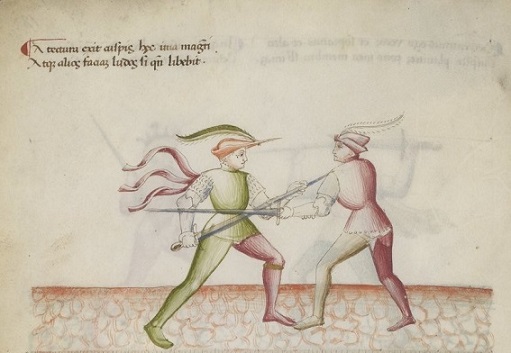 A tectura exit cuspis, hec una magr̃i
Atqꝫ alios faciaꝫ ludos si qñ libebit ·